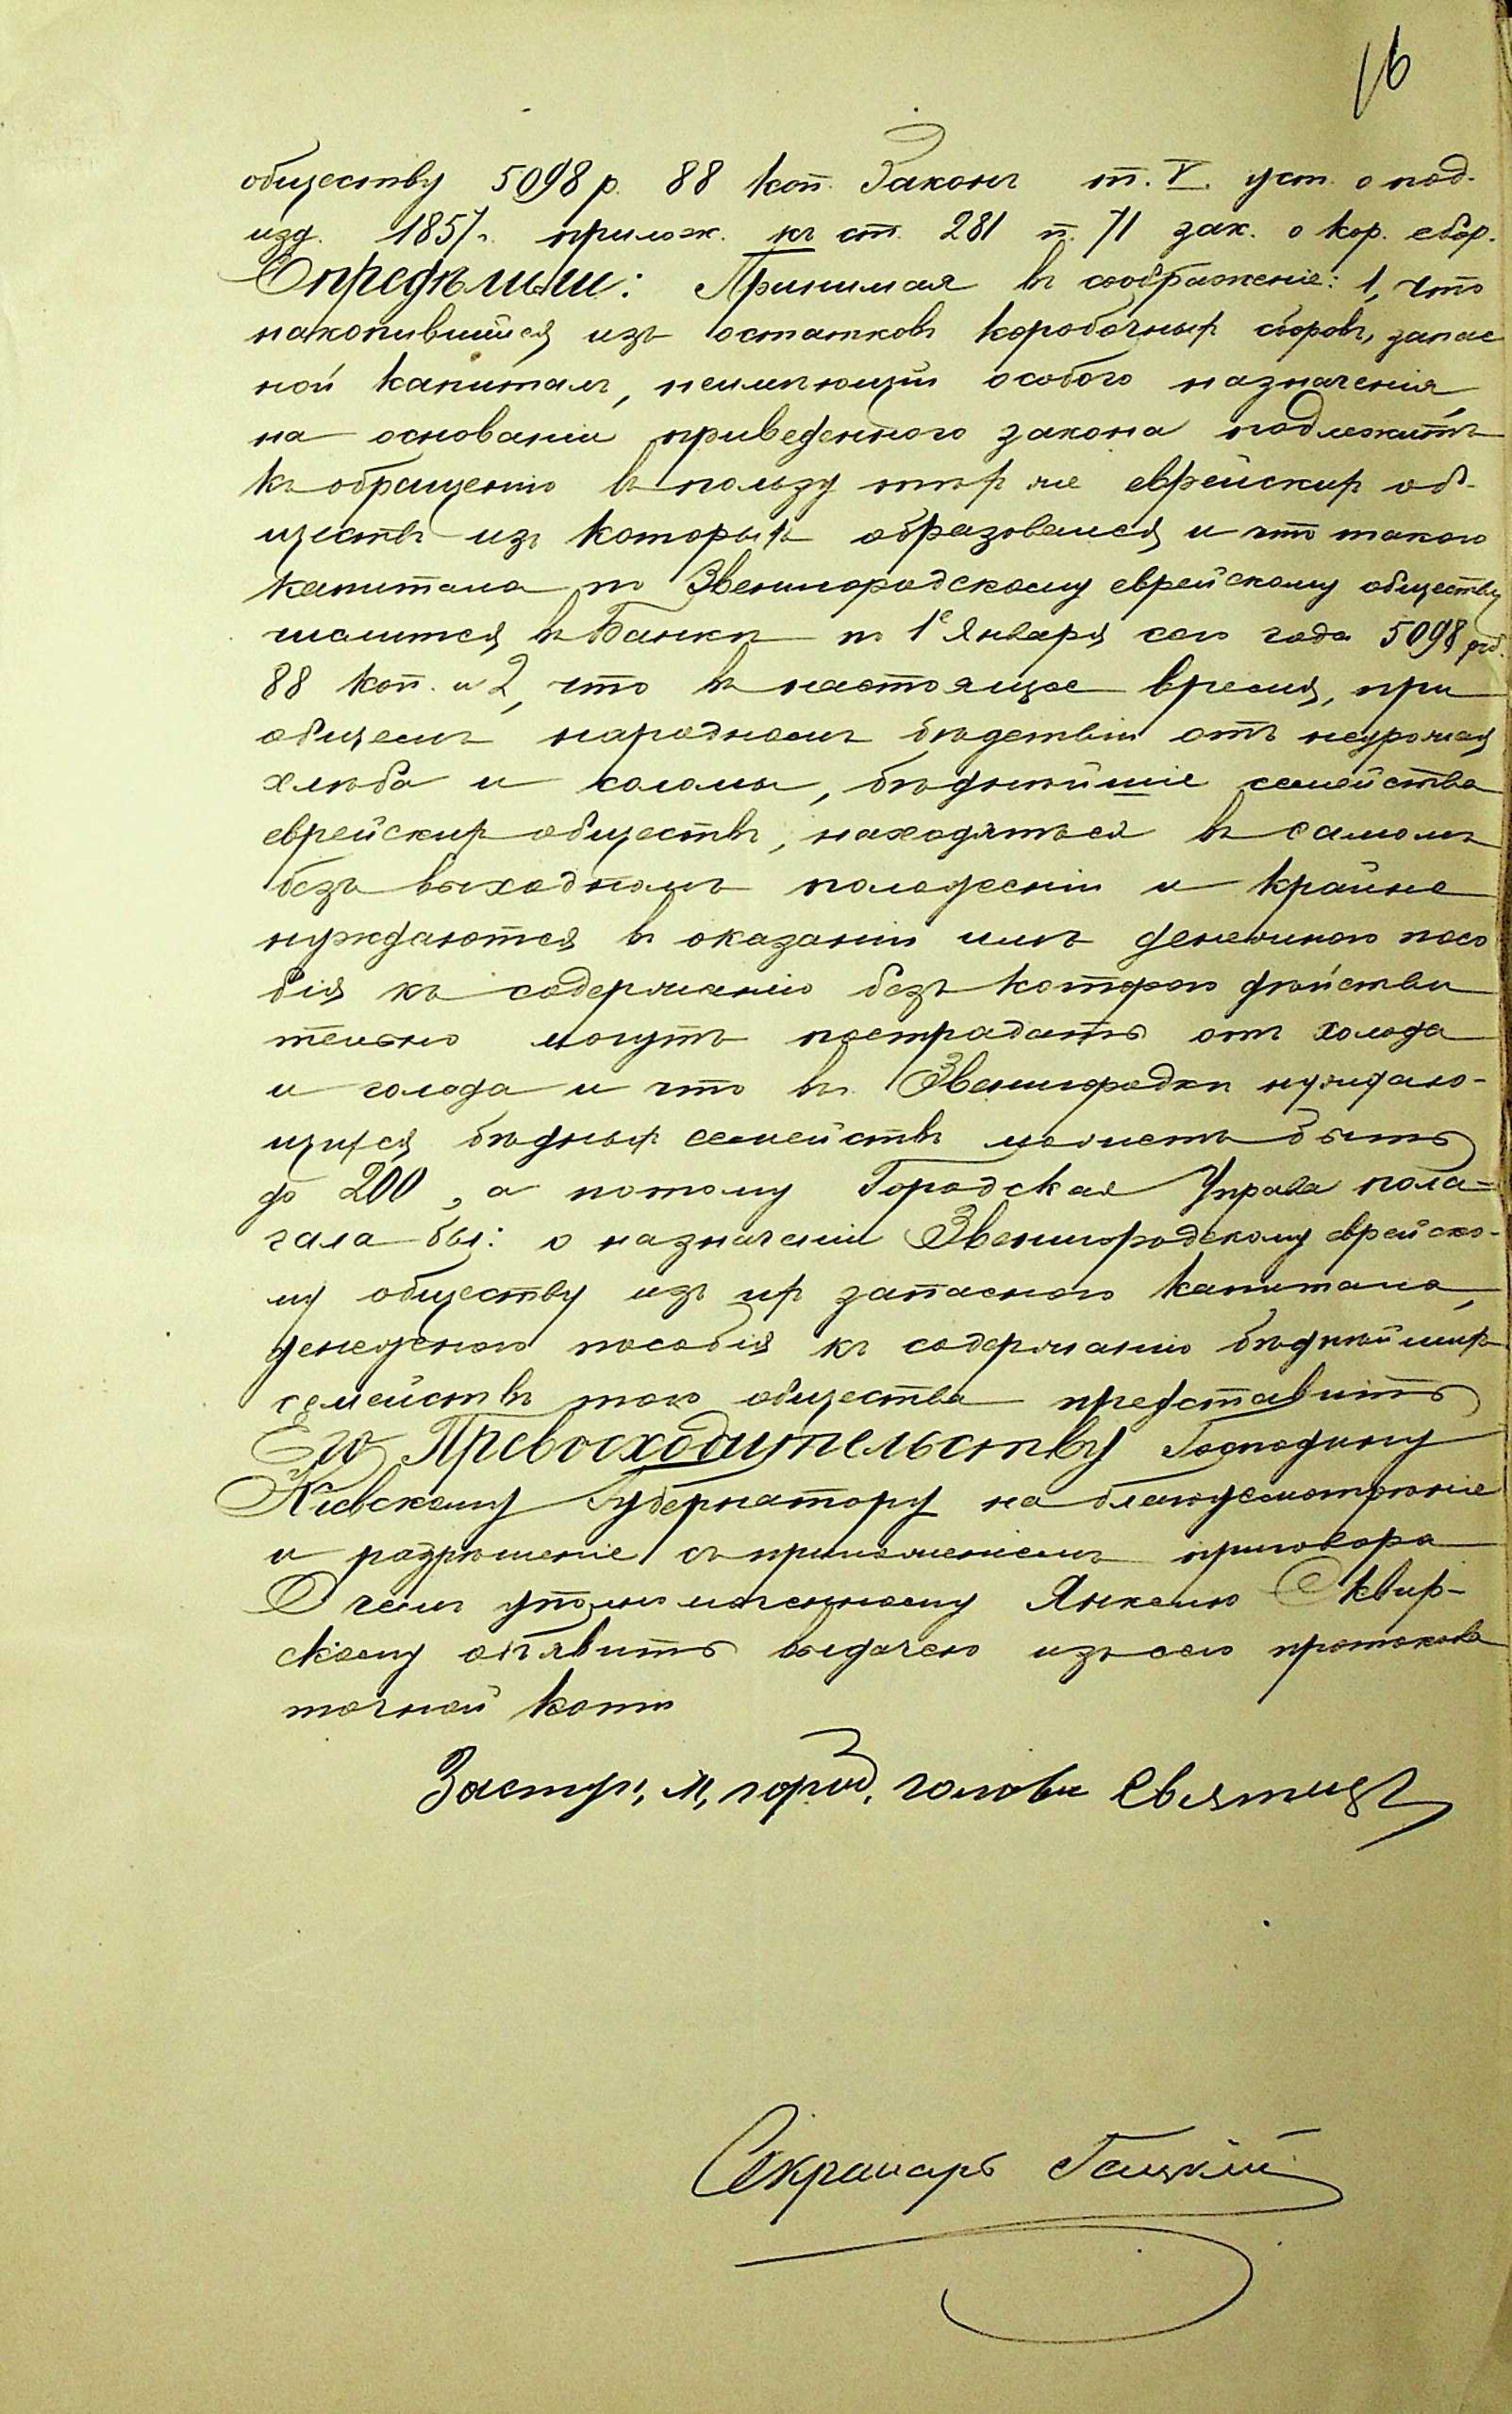 16
обществу 5098 р. 88 коп. Законъ т. V. уст. о под.
изд. 1857 г. прилож. къ ст. 281 п. 71 зак. о кор. сбор.
Опредѣлили: Принимая въ соображеніе: 1, что
накопившійся изъ остатковъ коробочныхъ сборовъ, запас
ной капиталъ, неимѣющій особого назначенія,
на основаніи приведенного закона подлежитъ
къ обращенію въ пользу тѣхъ же еврейскихъ об-
ществъ изъ которыхъ образовался и что такого
капитала по Звенигородскому еврейскому обществу
числится въ Банкѣ по 1е Января сего года 5098 руб.
88 коп. и 2, что въ настоящее время, при
общемъ народномъ бѣдствіи отъ неурожая
хлѣба и соломы, бѣднѣйшіе семейства
еврейскихъ обществъ, находяться въ самомъ
безъ выходномъ положеніи и крайне
нуждаются въ оказаніи имъ денежного посо
бія къ содержанію безъ которого дѣйстви
тельно могутъ пострадать отъ холода
и голода и что въ Звенигородкѣ нуждаю-
щихся бѣдныхъ семействъ можетъ быть
до 200, а потому Городская Управа пола=
гала бы: о назначеніи Звенигородскому еврейско-
му обществу изъ ихъ запасного капитала,
денежного пособія къ содержанію бѣднѣйшихъ
семействъ того общества представить
Его Превосходительству Господину
Кіевскому Губернатору на благоусмотрѣніе
и разрѣшеніе съ приложеніемъ приговора
О чемъ уполномоченному Янкелю Сквир-
скому объявить выдачею изъ сего протокола
точной копіи
Заступ. м. город. головы Святищ
Секретарь